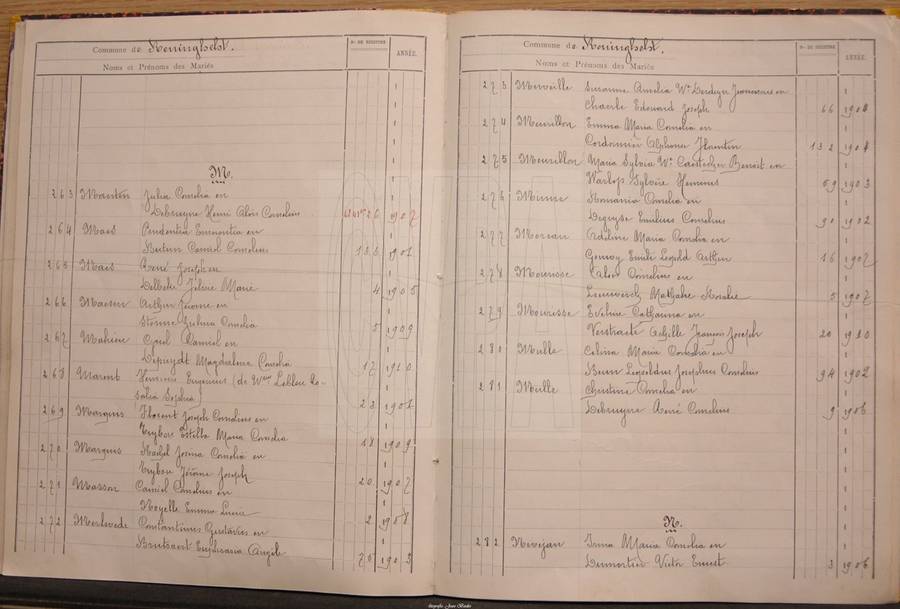 Commune de Reninghelst.
Nos DE REGISTRE
ANNÉE.
Noms et Prénoms des Mariés
M.
263 Manten Julia Cornelia en
Debruyne Henri Alois Cornelius 26 1907
264 Maes Prudentia Emerentia en
Bertein Camiel Cornelius 1901
265 Maes René Joseph en
Delbeke Helene Marie 4 1905
266 Maesen Arthur Jerome en
Storme Zulma Cornelia 5 1909
267 Mahieu Cyriel Camiel en
Depuydt Magdalena Cornelia 17 1910
268 Marant Henricus Eugenius (de Wwe Lebleu Ro-
salia Sophia) 23 1901
269 Marquis Florent Joseph Cornelius en
Trybou Estella Maria Cornelia 18 1909
270 Marquis Rachel Irma Cornelia en
Trybou Jérôme Joseph 20 1907
271 Masson Camiel Cornelius en
Noyelle Emma Lucia 2 1908
272 Merlevede Constantinus Gustavus en
Brutsaert Euphrasia Angele 76 1903
Commune de Reninghelst.
Nos DE REGISTRE
ANNÉE.
Noms et Prénoms des Mariés
273 Merveille Susanna Amelia We en
Charle Edouard Joseph 66 1904
274 Meurillon Emma Maria Cornelia en
Cordonnier Alphons Florentin 132 1904
275 Meurillon Maria Sylvia We Benoit en
Warlop Sylvère Hemmus 59 1903
276 Minne Romania Cornelia en
Degryse Emilius Cornelius 90 1902
277 Moreau Adeline Maria Cornelia en
Gouwy Emile Leopold Arthur 16 1907
278 Mourisse Valere Cornelius en
Leeuwerck Mathilde Rosalie 5 1907
279 Mouresse Eveline Catharina en
Verstraete Achille François Joseph 20 1910
280 Mulle Celina Maria Cornelia en
Brun Leopoldus Josephus Cornelius 94 1902
281 Mulle Christine Cornelia en
Debruyne René Cornelius 9 1906
N.
282 Nevejan Irma Maria Cornelia en
Demortier Victor Ernest 3 1906